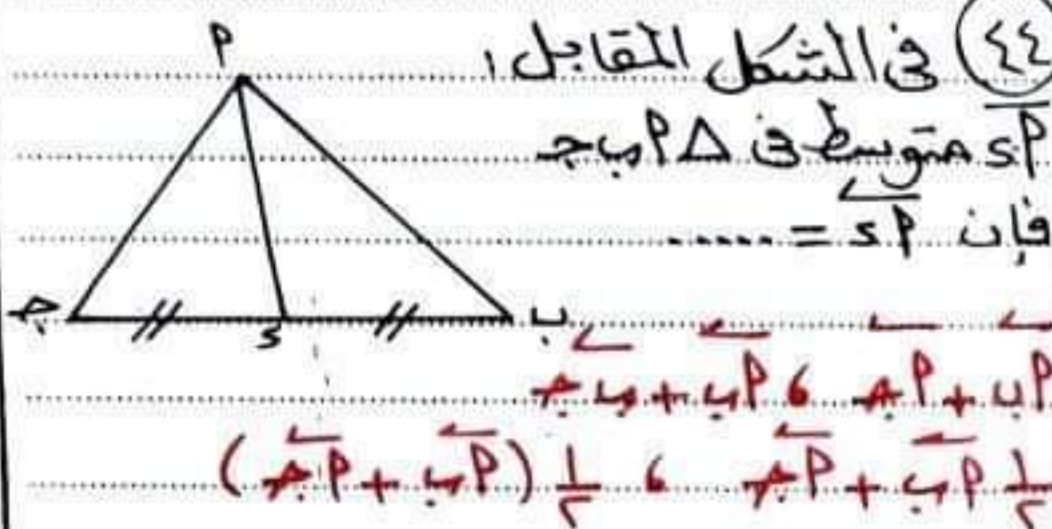 ٤٤ فى الشكل المقابل،
أ
أد متوسط فى Δ أ ب جـ
فإن أد = ......
جـ د ب
أب + أجـ ، أب + ب جـ
١/٢ أب + أجـ ، ١/٢ (أب + أجـ)